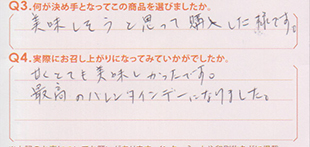 Q3.何が決め手となってこの商品を選びましたか。
美味しそうと思って購入した様です。
Q4.実際にお召し上がりになってみていかがでしたか。
甘くとても美味しかったです。
最高のバレンタインデーになりました。